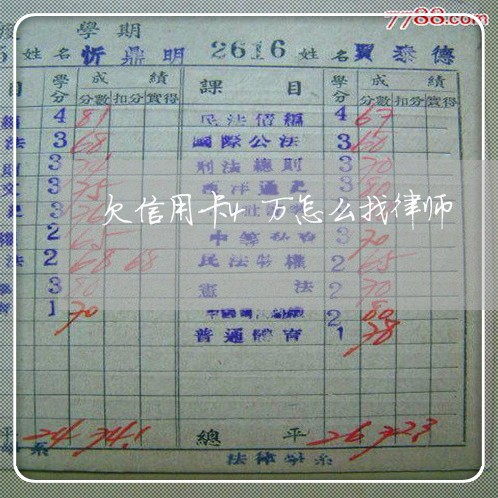 7788.com
學期
姓名 忻鼎明 2616 姓名 賈泰德
目 學分 成績 課目 學分 成績
分數 扣分 實得 分數 扣分 實得
4 81 民法債編 4 67
法 3 68 國際公法 3 60
3 刑法總則 3 70
3 75 西洋通史 3 80
3
欠信用卡4万怎么找律师
2 65 3 70
法 2 68 68 民法物權 2 65
3 80 憲法 2 70
1 70 2 80
普通體育 1 78
平 24 74.1 總平 26 72.3
系 法律學系